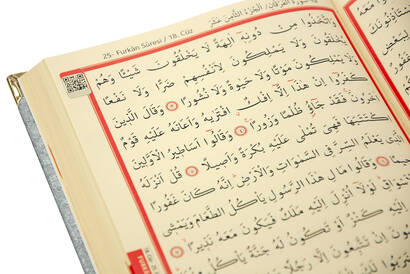 25- Furkân Sûresi / 18. Cüz
وَاتَّخَذُوا مِنْ دُونِهِٓ اٰلِهَةً لَا يَخْلُقُونَ شَيْـًٔا وَهُمْ
يُخْلَقُونَ وَلَا يَمْلِكُونَ لِاَنْفُسِهِمْ ضَرًّا وَلَا نَفْعًا
وَلَا يَمْلِكُونَ مَوْتًا وَلَا حَيٰوةً وَلَا نُشُورًا ٣ وَقَالَ الَّذِينَ
كَفَرُٓوا اِنْ هٰذَٓا اِلَّٓا اِفْكٌ افْتَرٰيهُ وَاَعَانَهُ عَلَيْهِ قَوْمٌ
اٰخَرُونَ فَقَدْ جَٓاؤُ ظُلْمًا وَزُورًا ٤ وَقَالُٓوا اَسَاطِيرُ الْاَوَّلِينَ
اكْتَتَبَهَا فَهِيَ تُمْلٰى عَلَيْهِ بُكْرَةً وَاَصِيلًا ٥ قُلْ اَنْزَلَهُ
الَّذِي يَعْلَمُ السِّرَّ فِي السَّمٰوَاتِ وَالْاَرْضِ اِنَّهُ كَانَ غَفُورًا
٦ وَقَالُوا مَالِ هٰذَا الرَّسُولِ يَأْكُلُ الطَّعَامَ وَيَمْشِي
لَوْلَٓا اُنْزِلَ اِلَيْهِ مَلَكٌ فَيَكُونَ مَعَهُ نَذِيرًا ٧
اِلَيْهِ كَنْزٌ اَوْ تَكُونُ لَهُ جَنَّةٌ يَأْكُلُ
اِنْ تَتَّبِعُونَ اِلَّا